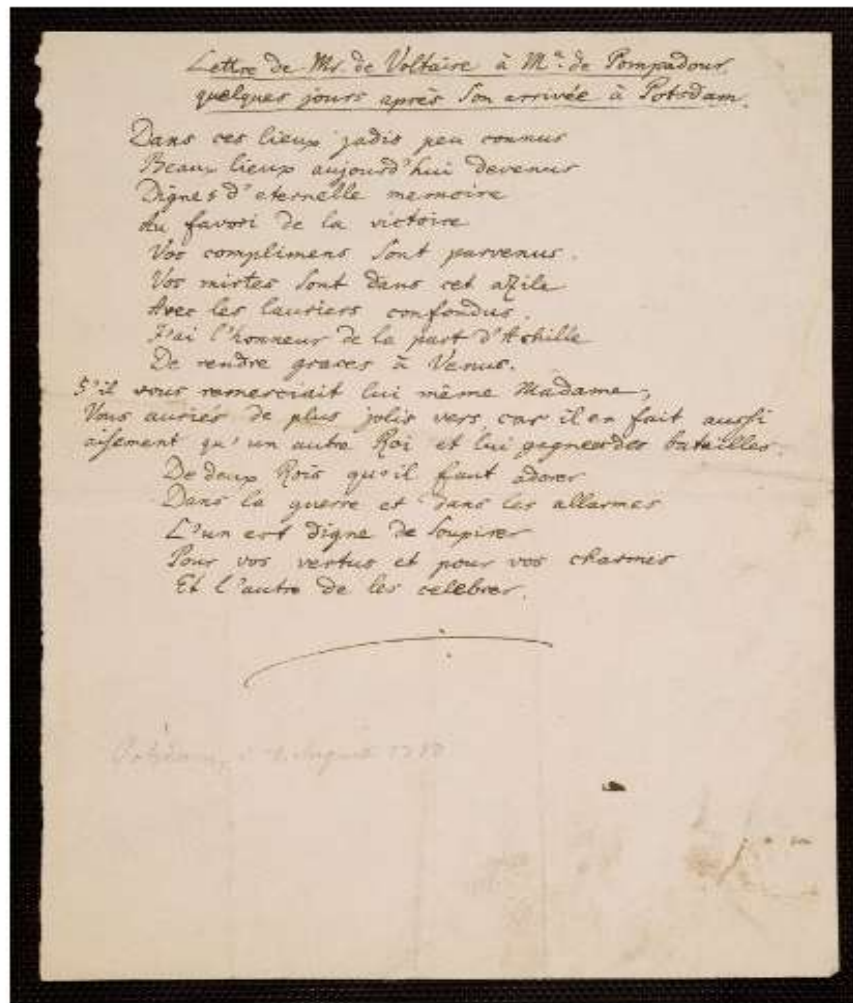 Lettre de Mr. de Voltaire à Me. de Pompadour
quelques jours après Son arrivée à Potsdam.
Dans ces lieux jadis peu connus
Beaux lieux aujourd'hui devenus
Dignes d'eternelle memoire
Au favori de la victoire
Vos complimens Sont parvenus.
Vos mirtes Sont dans cet azile
Avec les lauriers confondus.
J'ai l'honneur de la part d'Achille
De rendre graces à Venus.
S'il vous remerciait lui même Madame,
Vous auriés de plus jolis vers car il en fait aussi
aisement qu'un autre Roi et lui gagner des batailles.
De deux Rois qu'il faut adorer
Dans la guerre et dans les allarmes
L'un est digne de Soupirer
Pour vos vertus et pour vos charmes
Et l'autre de les celebrer.